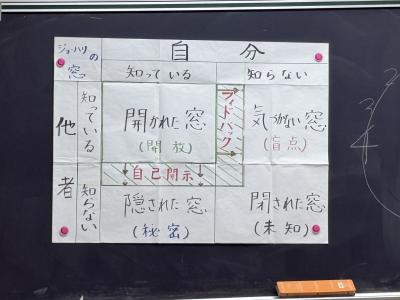 ジョハリの窓
自分
知っている
知らない
他者
知っている
開かれた窓
(開放)
フィードバック
気づかない窓
(盲点)
自己開示
知らない
隠された窓
(秘密)
閉ざされた窓
(未知)